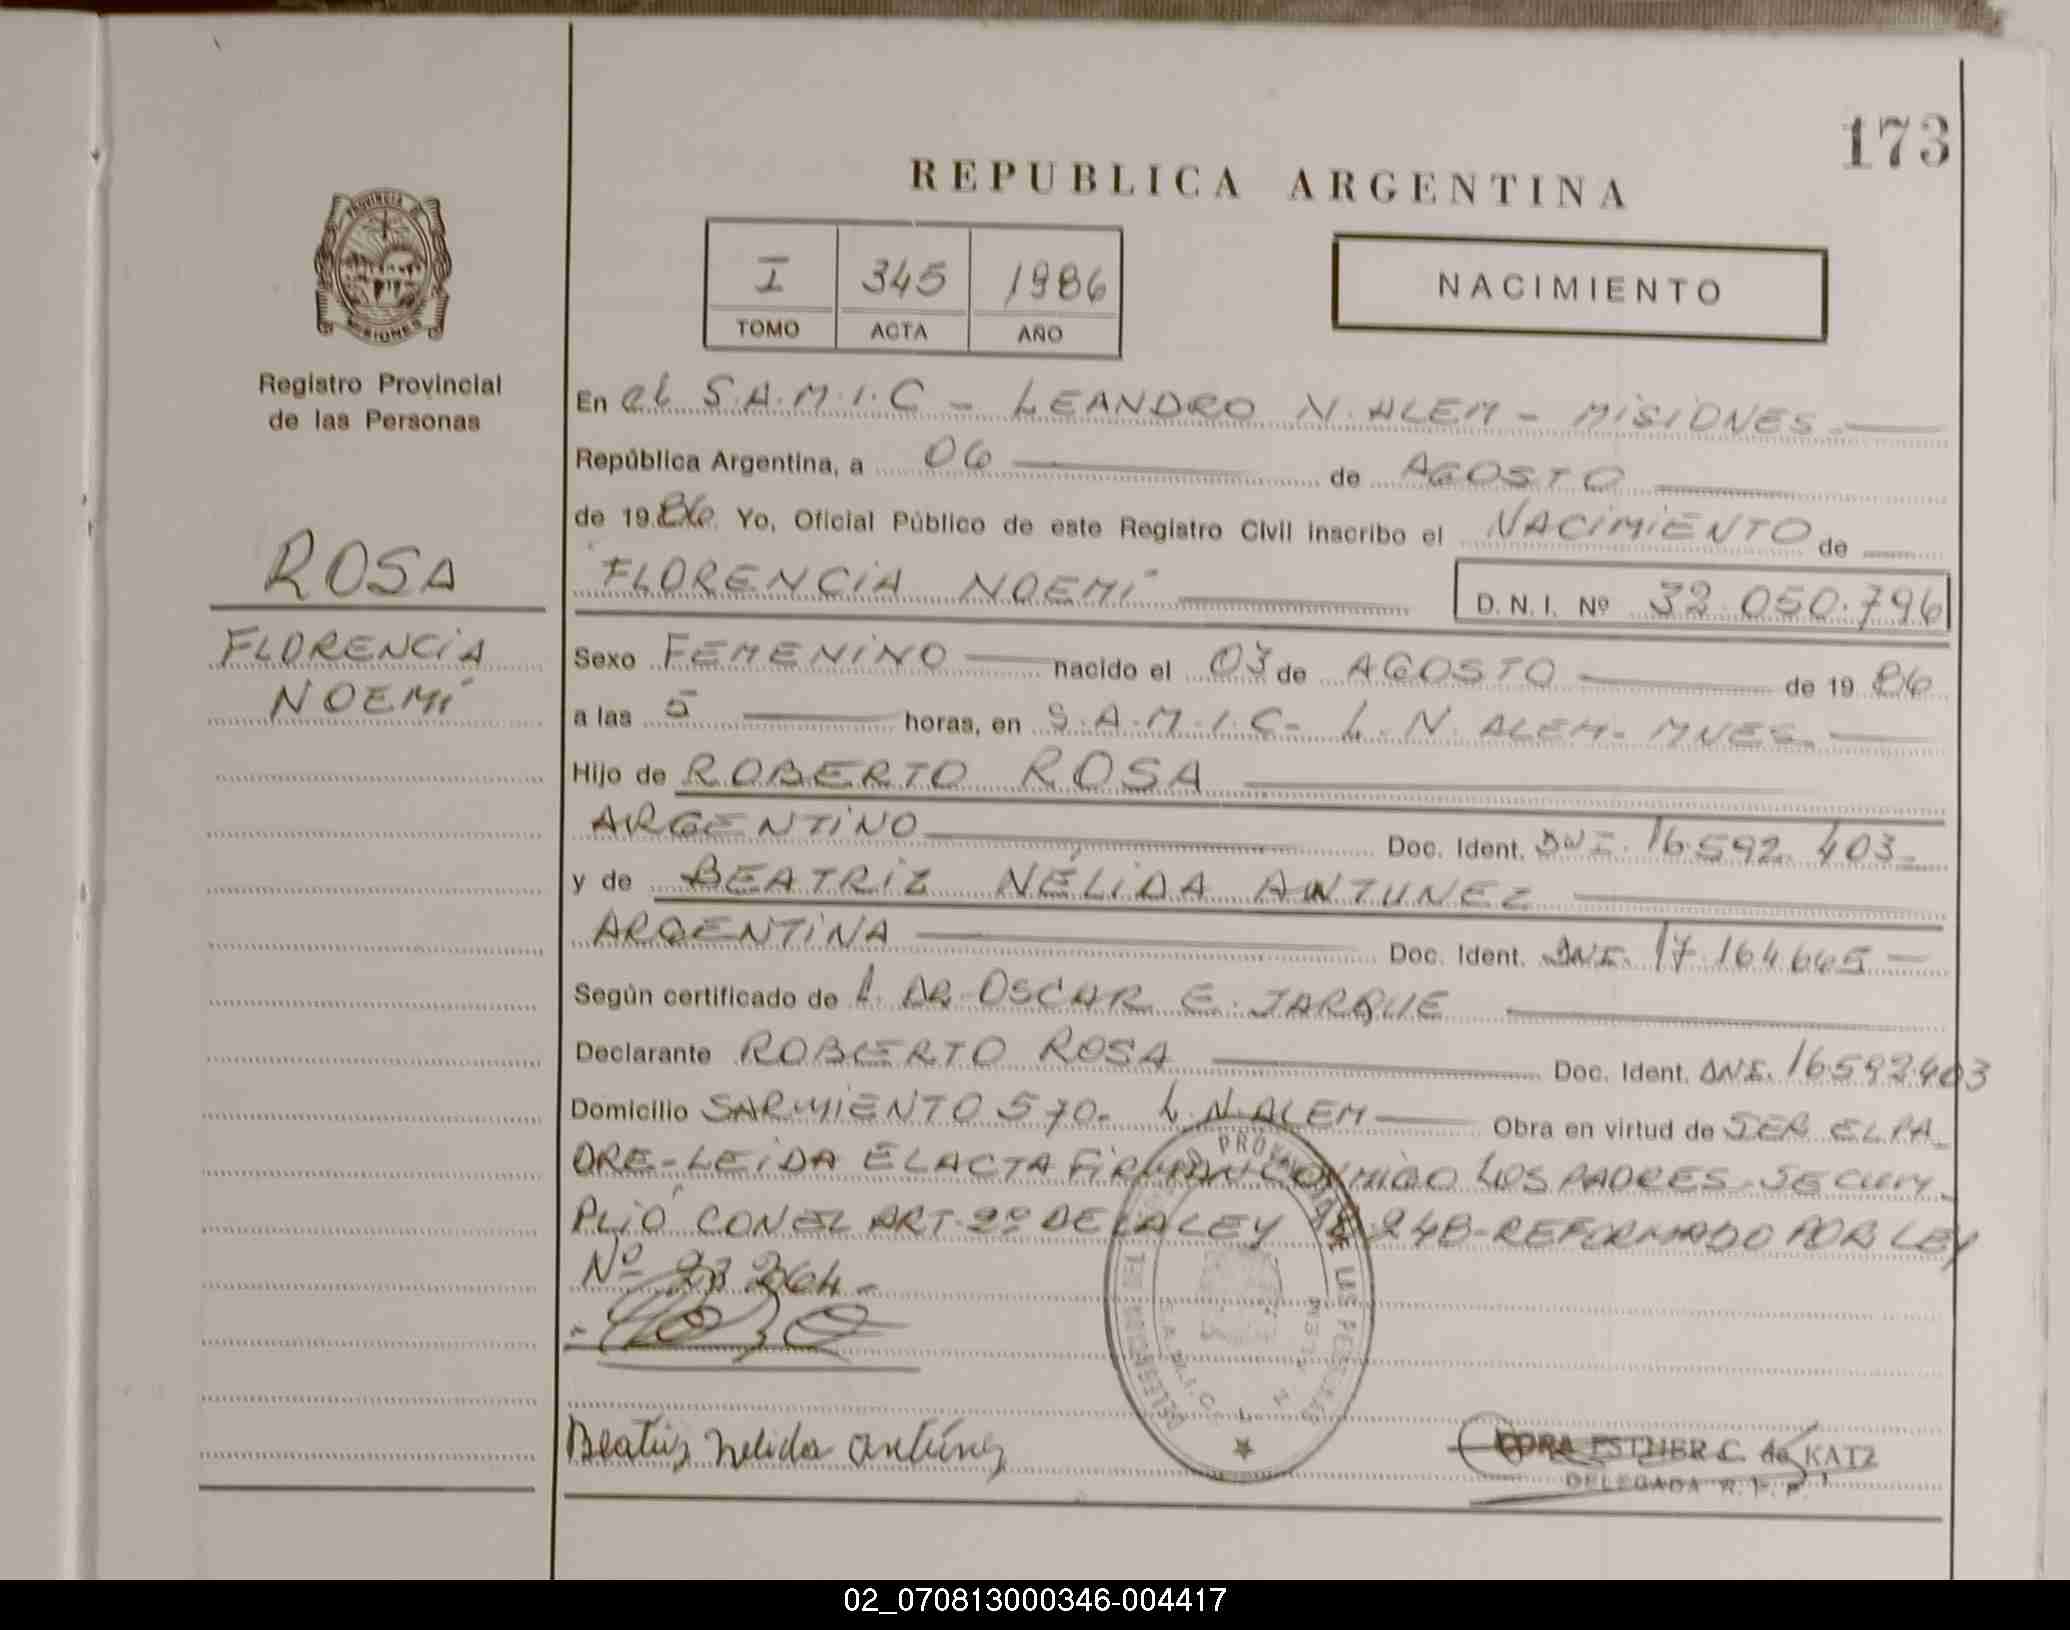 173
REPUBLICA ARGENTINA
I 345 1986
TOMO ACTA AÑO
NACIMIENTO
PROVINCIA DE MISIONES
Registro Provincial
de las Personas
ROSA
FLORENCIA
NOEMÍ
En el S.A.M.I.C - LEANDRO N. ALEM - MISIONES.
República Argentina, a 06 de AGOSTO
de 1986. Yo, Oficial Público de este Registro Civil inscribo el NACIMIENTO de
FLORENCIA NOEMÍ D.N.I. Nº 32.050.796
Sexo FEMENINO nacido el 03 de AGOSTO de 1986
a las 5 horas, en S.A.M.I.C- L.N. ALEM- MNES.
Hijo de ROBERTO ROSA
ARGENTINO Doc. Ident. DNI. 16.592.403-
y de BEATRIZ NÉLIDA ANTUNEZ
ARGENTINA Doc. Ident. DNI. 17.164.665
Según certificado de L. DR. OSCAR E. JARQUE
Declarante ROBERTO ROSA Doc. Ident. DNI. 16592403
Domicilio SARMIENTO 570- L.N. ALEM Obra en virtud de SER EL PA-
DRE-LEIDA EL ACTA FIRMAN CONMIGO LOS PADRES-SE CUM-
PLIÓ CON EL ART. 2º DE LA LEY 18.248-REFORMADO POR LEY
Nº 23264-
Beatriz Nelida Antúnez
DORA ESTHER C. de KATZ
DELEGADA R. P. P.
02_070813000346-004417